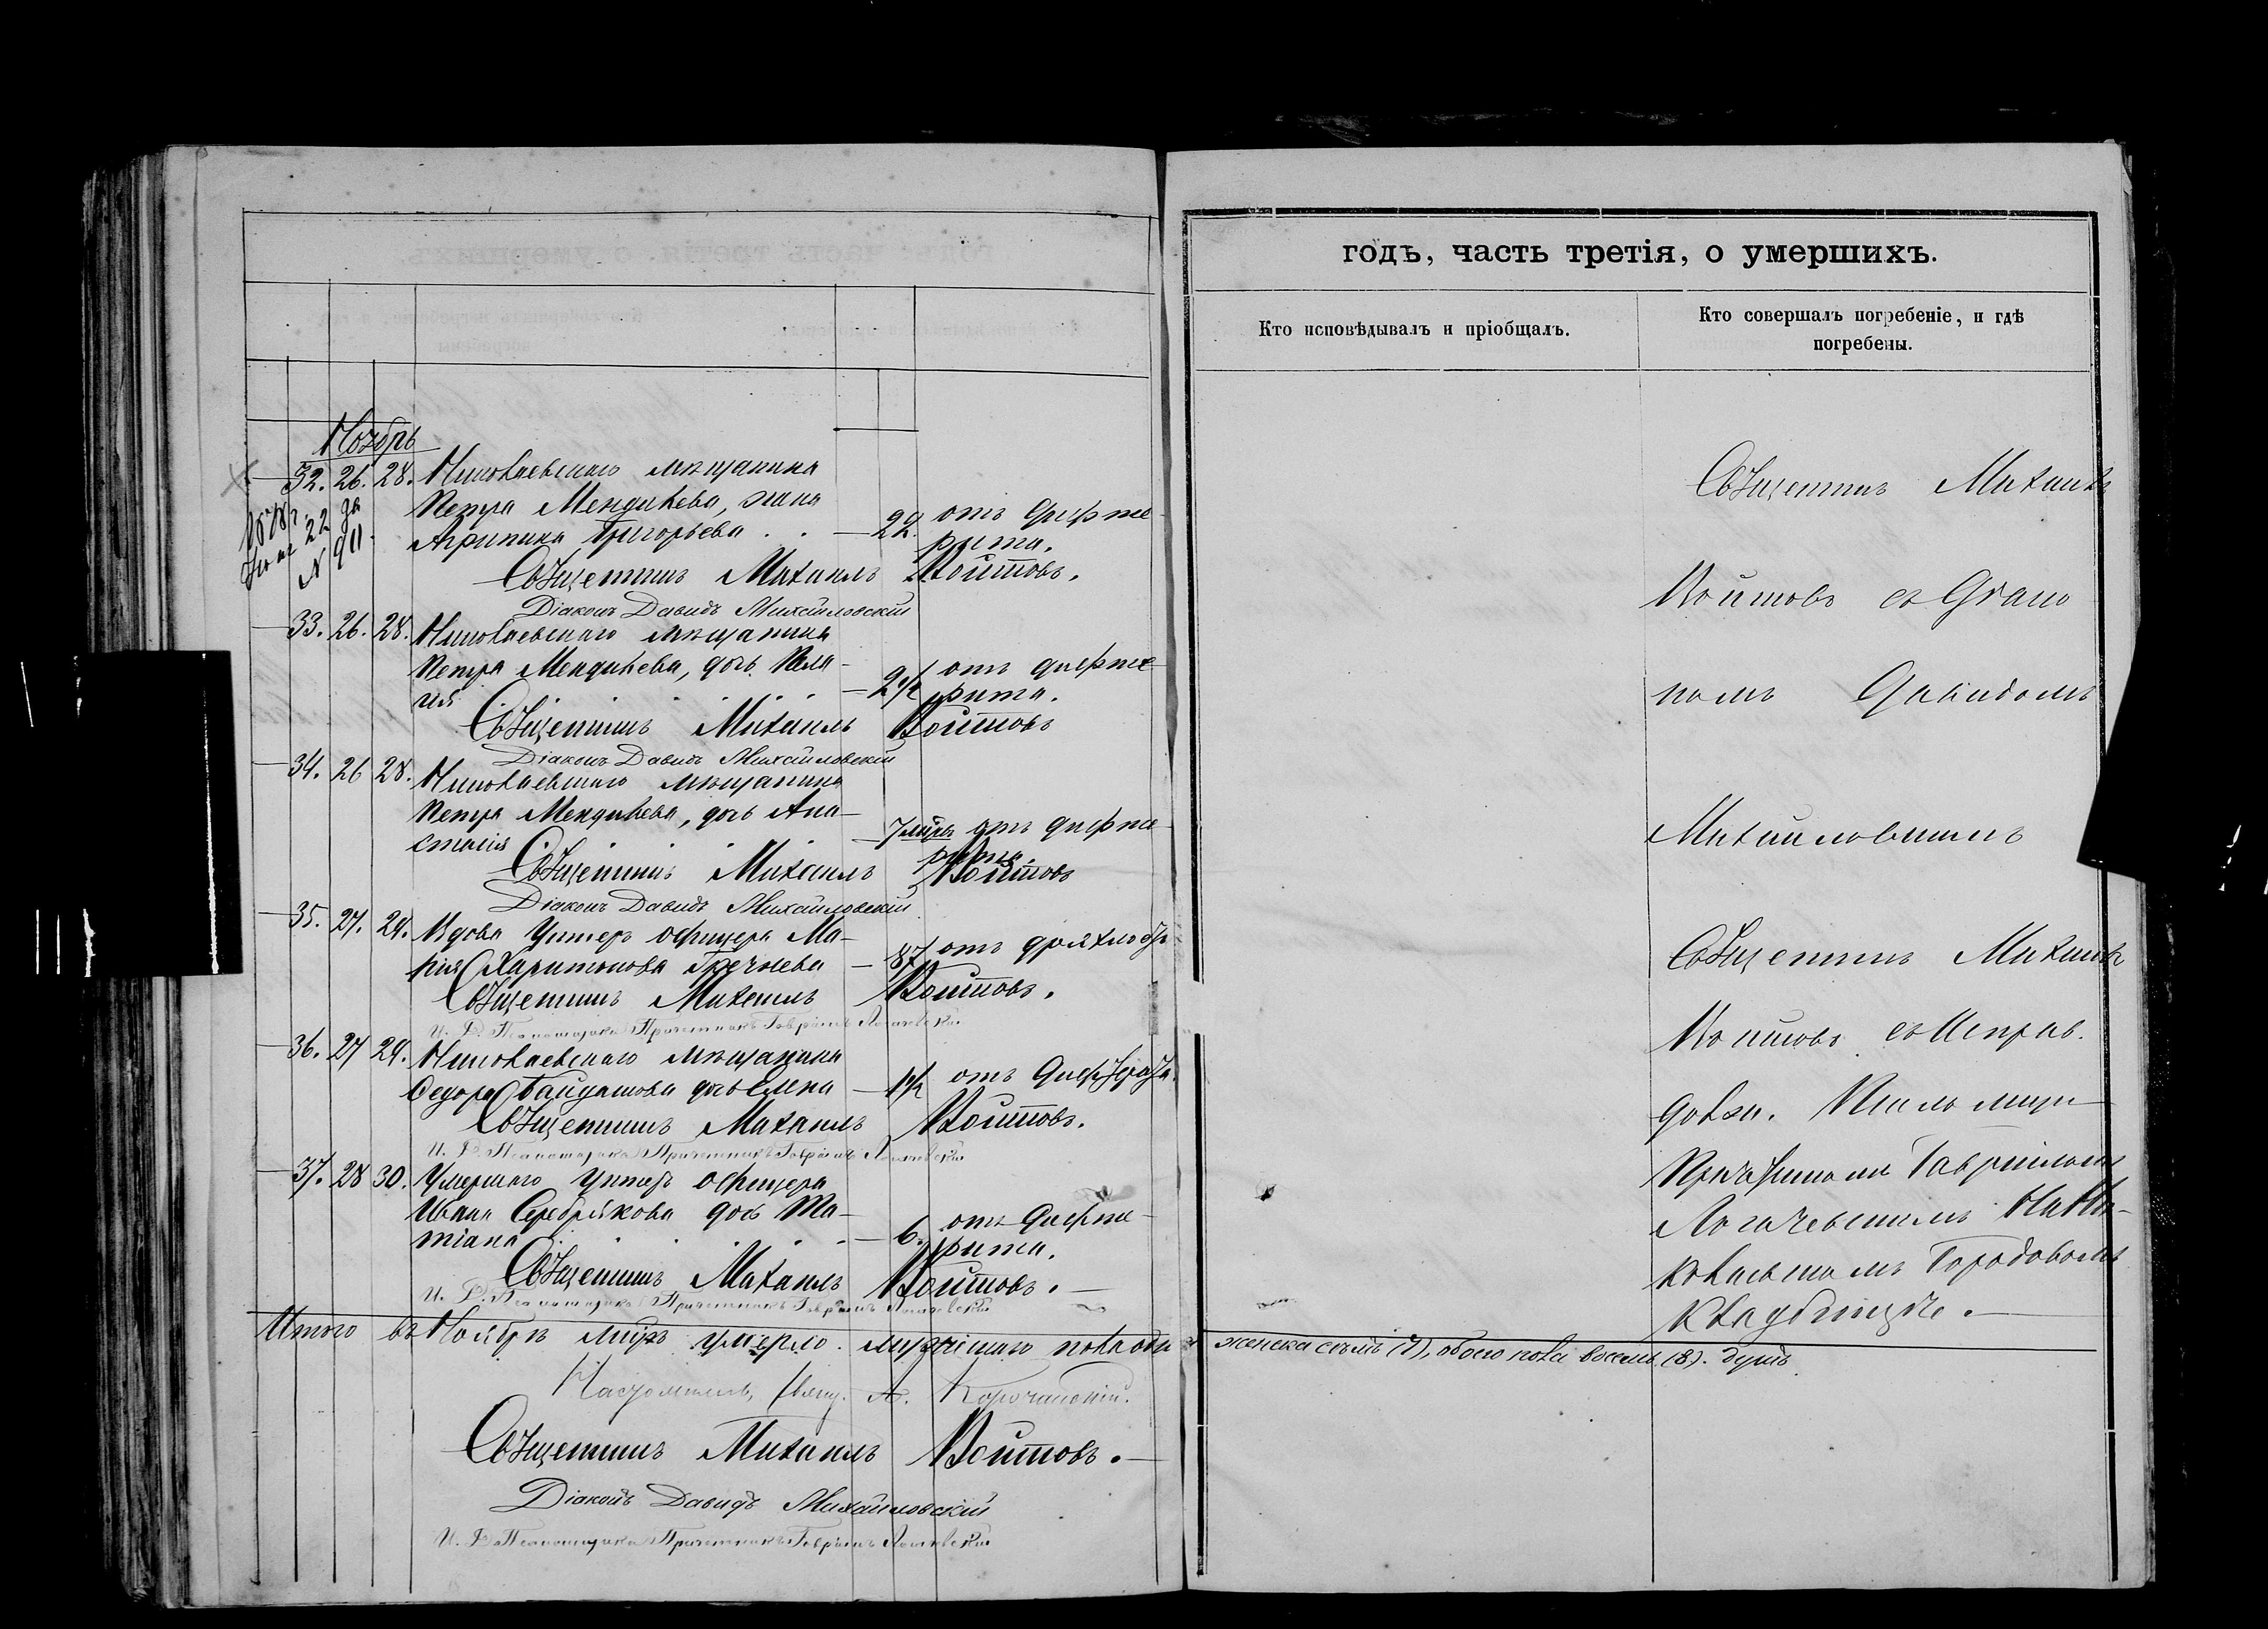 Ноябрь
32. 26. 28. Николаевскаго мѣщанина
Петра Мендикева, жена
Агрипина Григорьева . . — 22. отъ дифте
рита.
Священникъ Михаилъ Войтовъ.
Діаконъ Давидъ Михайловскій
22 да
N 911.
33. 26. 28. Николаевскаго мѣщанина
Петра Мендикева, дочь Пела-
гія — 2 1/2 отъ дифте
рита.
Священникъ Михаилъ Войтовъ
Діаконъ Давидъ Михайловскій
34. 26 28. Николаевскаго мѣщанина
Петра Мендикева, дочь Ана-
стасія — 7 мѣс. отъ дифте-
рита.
Священникъ Михаилъ Войтовъ
Діаконъ Давидъ Михайловскій
35. 27. 29. Вдова Унтеръ офицера Ма-
рія Харитонова Гречнева — 87 отъ дряхлости
Священникъ Михаилъ Войтовъ.
И. Д. Псаломщика Причетникъ Гавріилъ Логачевскій
36. 27 29. Николаевскаго мѣщанина
Ѳедора Байдашова дочь Елена — 1 1/2 отъ дифтерита.
Священникъ Михаилъ Войтовъ.
И. Д. Псаломщика Причетникъ Гавріилъ Логачевскій
37. 28 30. Умершаго Унтеръ офицера
Ивана Серебрякова дочь Та-
тіана — 6. отъ дифте-
рита.
Священникъ Михаилъ Войтовъ. —
И. Д. Псаломщика Причетникъ Гавріилъ Логачевскій
Итого въ Ноябрѣ мѣсяцѣ умерло мужескаго пола одн
Настоятель, Свящ. А. Корочанскій.
Священникъ Михаилъ Войтовъ. —
Діаконъ Давидъ Михайловскій
И. Д. Псаломщика Причетникъ Гавріилъ Логачевскій
годъ, часть третія, о умершихъ.
Кто исповѣдывалъ и пріобщалъ.
Кто совершалъ погребеніе, и гдѣ
погребены.
Священникъ Михаилъ
Войтовъ съ Діако
номъ Давидомъ
Михайловскимъ
Священникъ Михаилъ
Войтовъ съ Исправ.
должн. Псаломщи
Причетникомъ Гавріиломъ
Логачевскимъ На Ни-
колаевскомъ Городовомъ
кладбищѣ. —
женска семь (7), обоего пола восемь (8). душъ